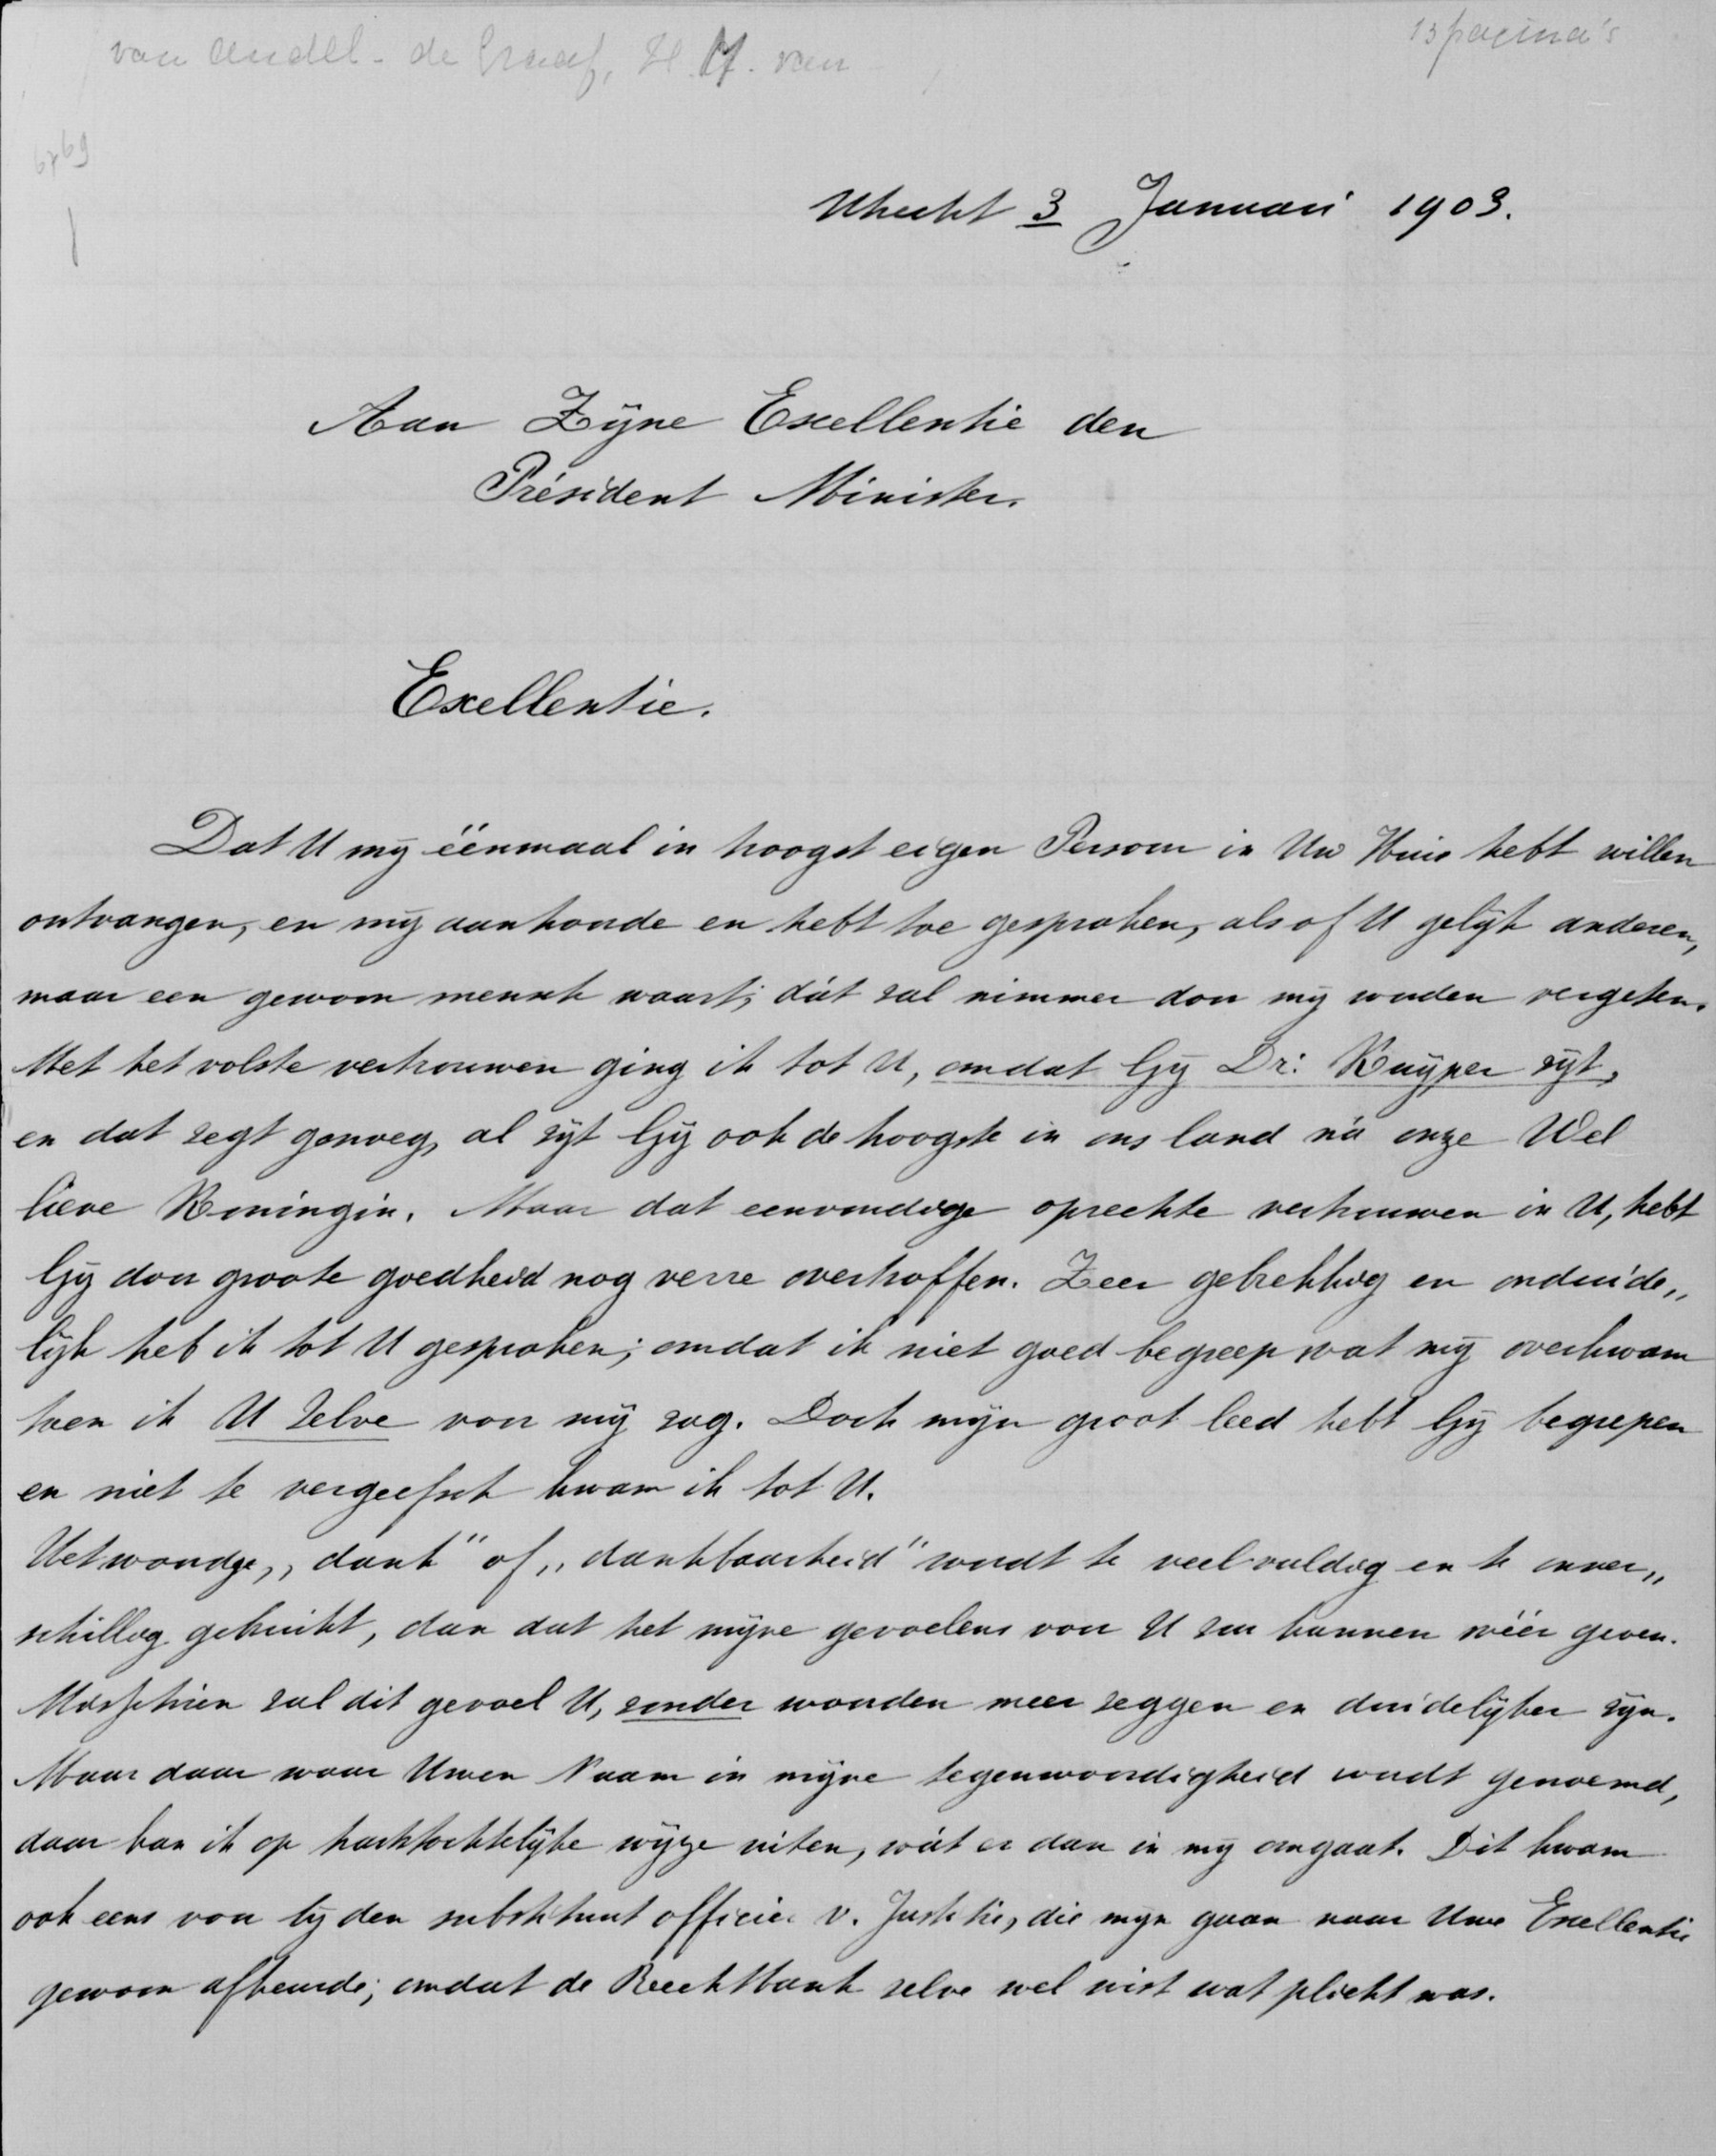 13 pagina's
van Andel - de Graaf, H. M. van
6769
Utrecht 3 Januari 1903.
Aan Zijne Exellentie den
Président Minister.
Exellentie.
Dat U mij éénmaal in hoogst eigen Persoon in Uw Huis hebt willen
ontvangen, en mij aanhoorde en hebt toe gesproken, als of U gelijk anderen,
maar een gewoon mensch waart; dát zal nimmer door mij worden vergeten.
Met het volste vertrouwen ging ik tot U, omdat Gij Dr: Kuijper zijt,
en dat zegt genoeg, al zijt Gij ook de hoogste in ons land ná onze Wel
lieve Koningin. Maar dat eenvoudige oprechte vertrouwen in U, hebt
Gij door groote goedheid nog verre overtroffen. Zeer gebrekkig en onduide„
lijk heb ik tot U gesproken; omdat ik niet goed begreep wat mij overkwam
toen ik U Zelve voor mij zag. Doch mijn groot leed hebt Gij begrepen
en niet te vergeefsch kwam ik tot U.
Het woordje „dank" of „dankbaarheid" wordt te veelvuldig en te onver„
schillig gebruikt, dan dat het mijne gevoelens voor U zou kunnen wéér geven.
Misschien zal dit gevoel U, zonder woorden meer zeggen en duidelijker zijn.
Maar daar waar Uwen Naam in mijne tegenwoordigheid wordt genoemd,
daar kan ik op hartstochtelijke wijze uiten, wát er dan in mij omgaat. Dit kwam
ook eens voor bij den substituut officier v. Justitie, die mijn gaan naar Uwe Exellentie
gewoon afkeurde; omdat de Rechtbank zelve wel wist wat plicht was.